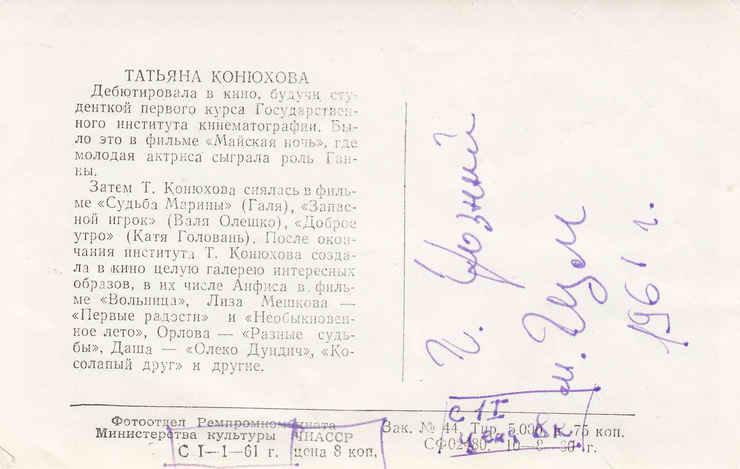 ТАТЬЯНА КОНЮХОВА
Дебютировала в кино, будучи сту-
денткой первого курса Государствен-
ного института кинематографии. Бы-
ло это в фильме «Майская ночь», где
молодая актриса сыграла роль Ган-
ны.
Затем Т. Конюхова снялась в филь-
ме «Судьба Марины» (Галя), «Запас-
ной игрок» (Валя Олешко), «Доброе
утро» (Катя Головань). После окон-
чания института Т. Конюхова созда-
ла в кино целую галерею интересных
образов, в их числе Анфиса в филь-
ме «Вольница», Лиза Мешкова —
«Первые радости» и «Необыкновен-
ное лето», Орлова — «Разные судь-
бы», Даша — «Олеко Дундич», «Ко-
солапый друг» и другие.
г. Грозный
1961 г.
С 1 I
8 к
Фотоотдел
Министерства культуры ЧИАССР
С I—1—61 г. цена 8 коп.
Зак. № 44, Тир. 5.000, ц. 75 коп.